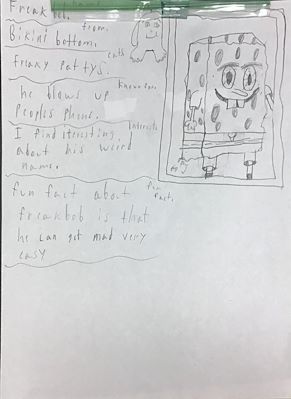 Freak
from.
Bikini bottom.
eats
freaky pattys.
known for.
he blows up
peoples phone.
Interests
I find
about his weird
name.
fun
fact.
fun fact about
freakbob is that
he can get mad very
easy